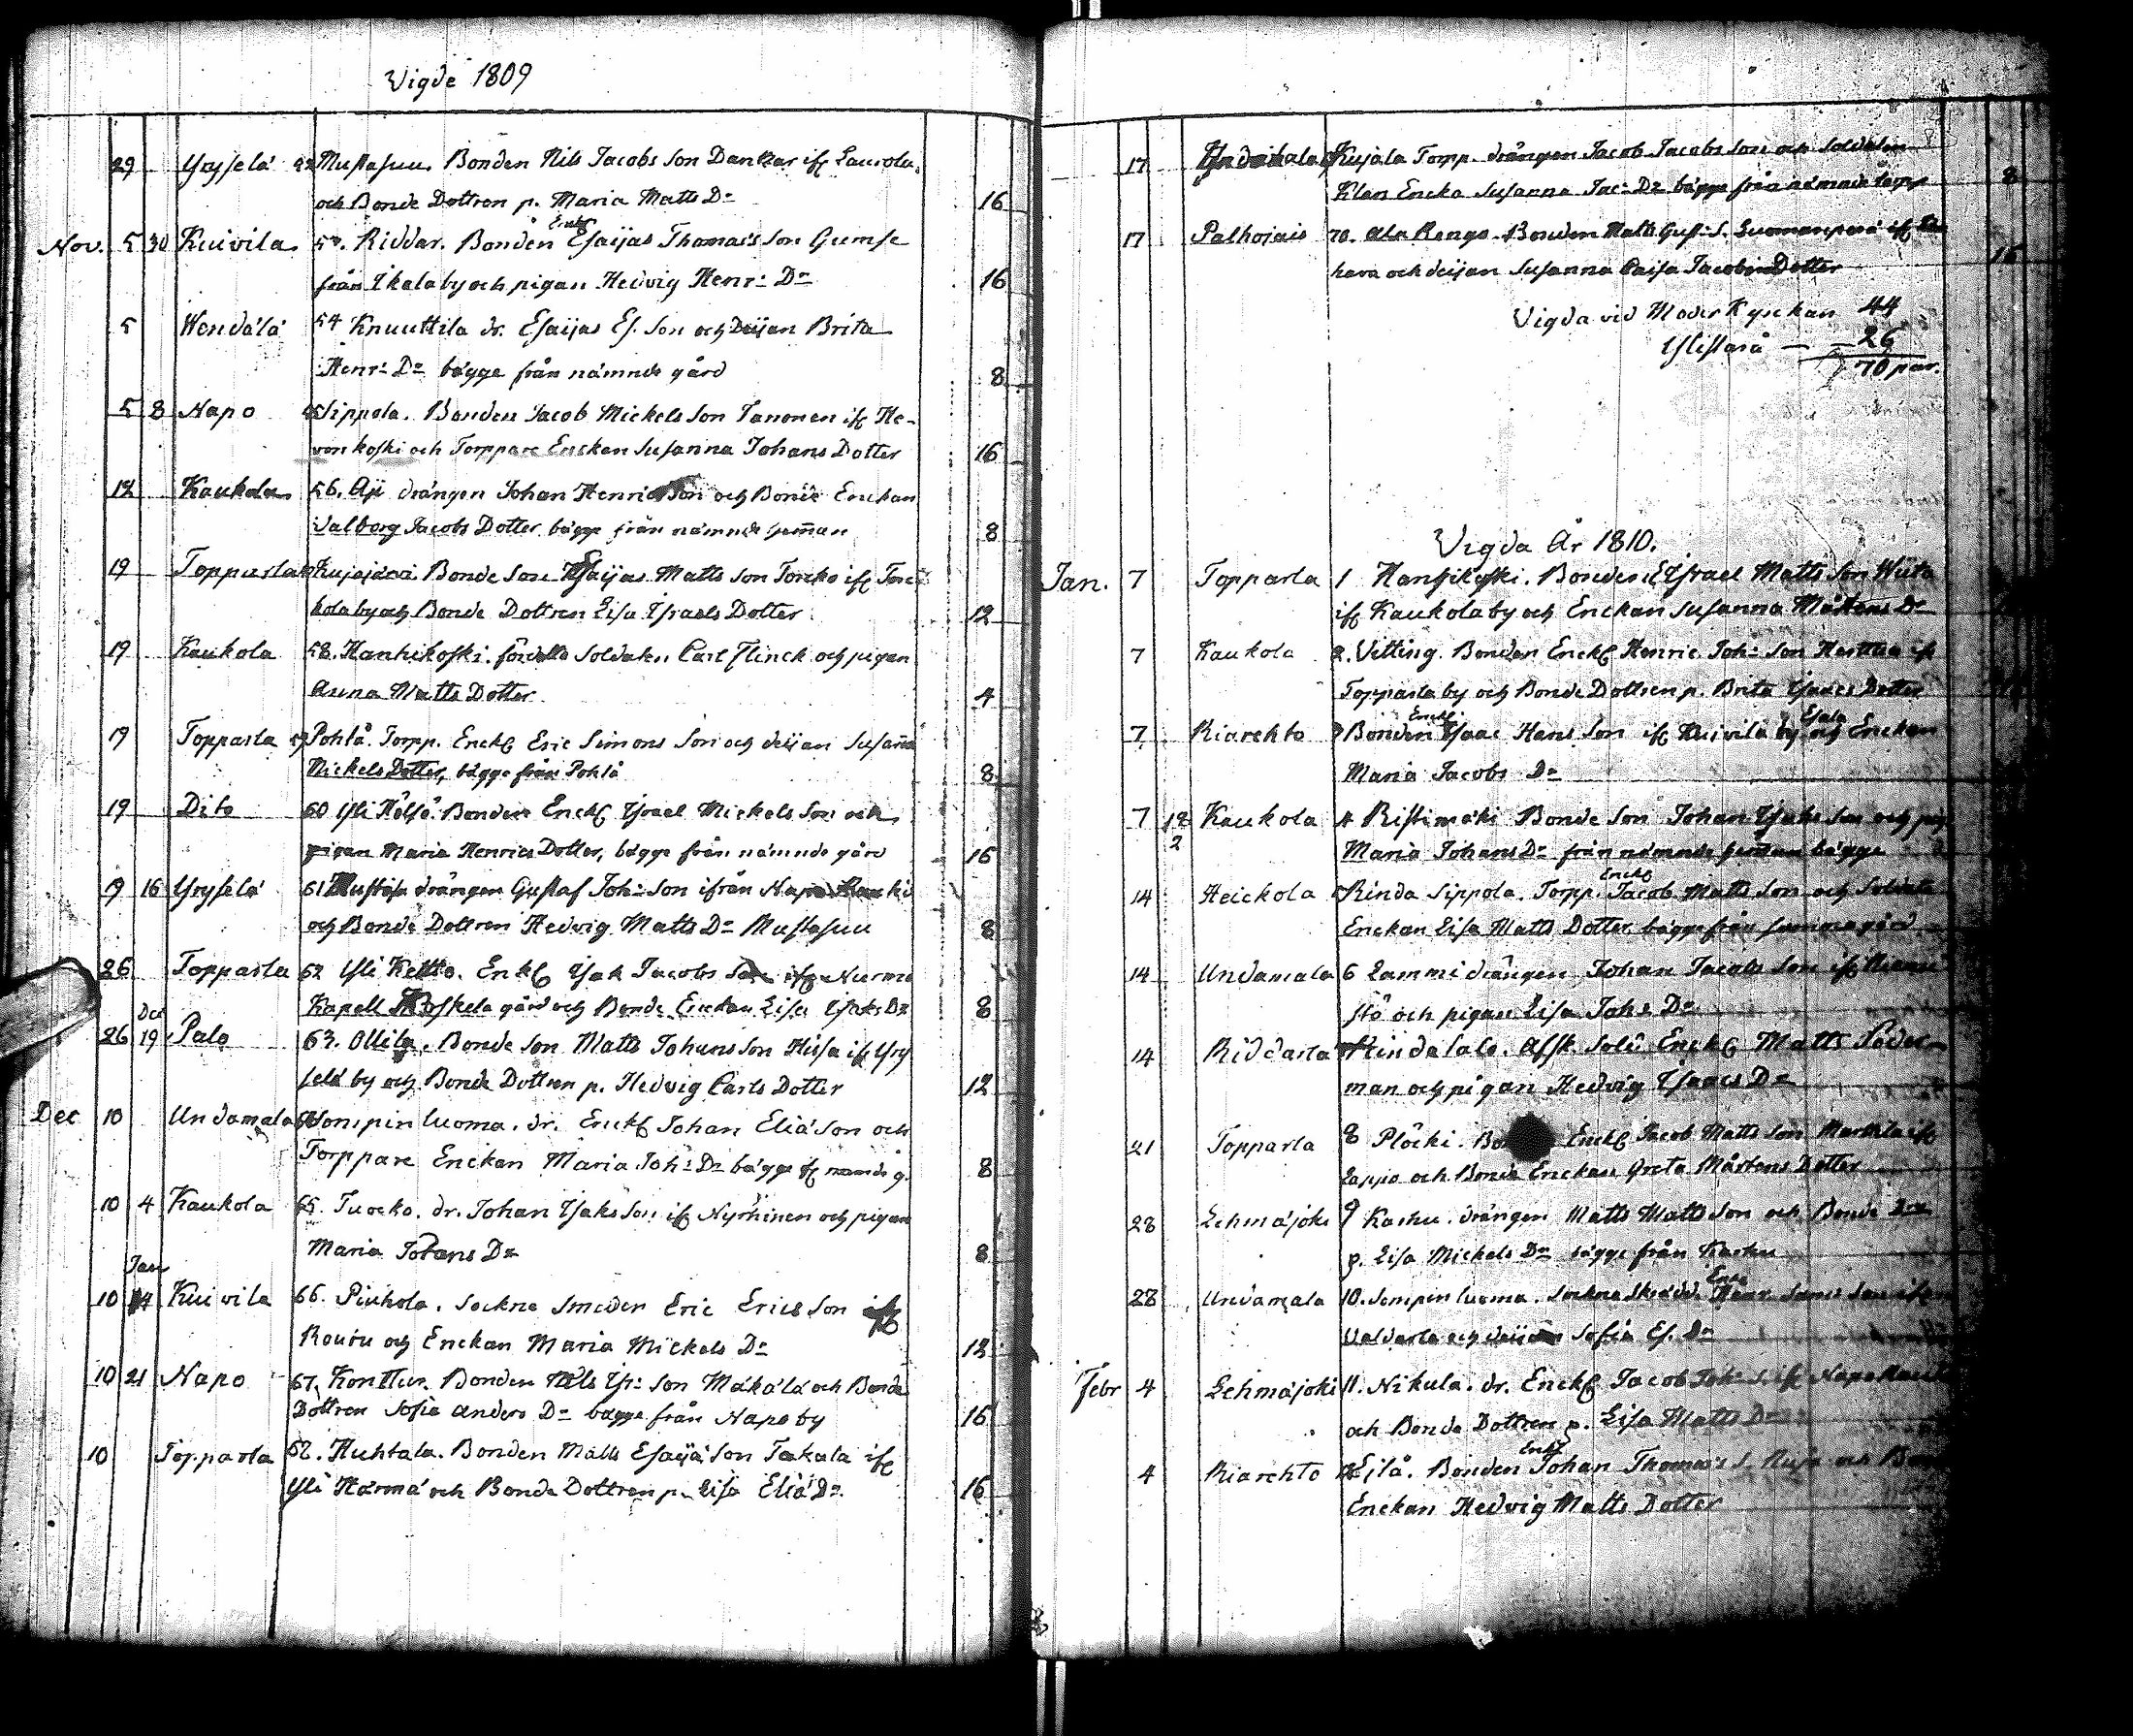 Vigde 1809
29 Yrjselä 52 Mustasuu. Bonden Nils Jacobs Son Dankar if Laurola.
och Bonde Dottren p. Maria Matts Dr 16
Nov. 5 30 Kuivila 53. Riddar. Bonden Enkl Esaijas Thomas's Son Gumse
från Ikala by och pigan Hedvig Henr: Dr 16
5 Wendälä 54 Knuuttila dr. Esaijas Es. Son och deijan Brita
Henr: Dr bägge från nämnde gård 8
5 8 Napo 55 Sippola. Bonden Jacob Mickels Son Tanonen if He-
von koski och Torppare Enckan Susanna Johans Dotter 16
12 Kaukola 56. Äjï drängen Johan Henrics Son och Bonde Enckan
Valborg Jacobs Dotter bägge från nämnde heman 8
19 Topparla Bonde Son Esaijas Matts Son Torcko if
kola by och Bonde Dottren Lisa Israels Dotter 12
19 Kaukola 58. Hanhikoski. Soldaten Carl Flinck och pigan
Anna Matts Dotter 4
19 Topparla 59 Pohtå. Torp. Enckl Eric Simons Son och deijan Susaña
Mickels Dotter, bägge från Pohtå 8
19 Dito 60 Yli Bonden Enckl Israel Mickels Son och
pigan Maria Henrics Dotter, bägge från nämnde gård 16
9 16 Yrjselä 61 drängen Gustaf Joh: Son ifrån Napo
och Bonde Dottren Hedvig Matts Dr Mustasuu 8
26 Topparla 62 Yli Ketto. Enkl Isak Jacobs Son if Nurmo
Kapell Koskela gård och Bonde Enckan Lisa Isaks Dr 8
Dec
26 19 Palo 63. Ollila. Bonde Son Matts Johans Son Hissa if Yrj
selä by och Bonde Dottren p. Hedvig Carls Dotter 12
Dec 10 Undamala 64 Sompin luoma. dr. Enckl Johan Eliä Son och
Torppare Enckan Maria Joh: Dr bägge if nämnde g. 8
10 4 Kaukola 65. Tuocko. dr. Johan Isaks Son if Nyrhinen och pigan
Maria Johans Dr 8
Jan
10 14 Kuivila 66. Piuhola. Sockne Smeden Eric Erics Son if
Rouru och Enckan Maria Mickels Dr 12
10 21 Napo 67. Konttur. Bonden Nils Is: Son Mäkälä och Bonde
Dottren Sofia Anders Dr bägge från Napo by 16
10 Topparla 68. Huhtala. Bonden Matts Esaijä Son Takala if
Yli Härmä och Bonde Dottren p. Lisa Eliä Dr. 16
17 Kujala Torp. drängen Jacob Jacobs Son och Soldaten
Klen Encka Susanna Jac: Dr bägge från nämnde torpp 8
17 Palhojais 70. Ala Rengo. Bonden Matts Gust: S. Luomanperä if
hava och deijan Susanna Caisa Jacobs Dotter 16
Vigda vid Moder Kyrckan 44
Ylistarå — 26
70 par.
Vigda År 1810.
Jan. 7 Topparla 1 Hanhikoski. Bonden Israel Matts Son Wiita
if Kaukola by och Enckan Susanna Mårtens Dr
7 Kaukola 2. Vitting. Bonden Enckl Henric Joh: Son Harttua if
Topparla by och Bonde Dottren p. Brita Isaacs Dotter
7 Riarehto 3 Bonden Enckl Isaac Hans Son if Kuivila by och Enckan
Maria Jacobs Dr
7 12/2 Kaukola 4 Ristimäki Bonde Son Johan Isaks Son och pig.
Maria Johans Dr från nämnde heman bägge
14 Heickola 5 Rinda Sippola. Torp. Enckl Jacob Matts Son och Soldats
Enckan Lisa Matts Dotter bägge från samma gård
14 Undamala 6 Lammi drängen Johan Jacobs Son if
stö och pigan Lisa Joh: Dr
14 Riddarla 7 Rindasalo. Afsk. Sold Enckl Matts Söder
man och pigan Hedvig Isaacs Dr
21 Topparla 8 Plöcki. Enckl Jacob Matts Son Markkla if
Lappo och Bonde Enckan Greta Mårtens Dotter
28 Lehmäjoki 9 Kashu. drängen Matts Matts Son och Bonde Dr
p. Lisa Mickels Dr bägge från Kashu
28 Undamala 10. Sompin luoma. Sockne Skrädd. Enckl Henr Son if
Valdarla och deijan Sofia Es. Dr
Febr 4 Lehmäjoki 11. Nikula. dr. Enckl Jacob Joh: S. if Napo
och Bonde Dottren p. Lisa Matts Dr
4 Riarehto 12 Eilå. Bonden Enckl Johan Thomas's S. och
Enckan Hedvig Matts Dotter